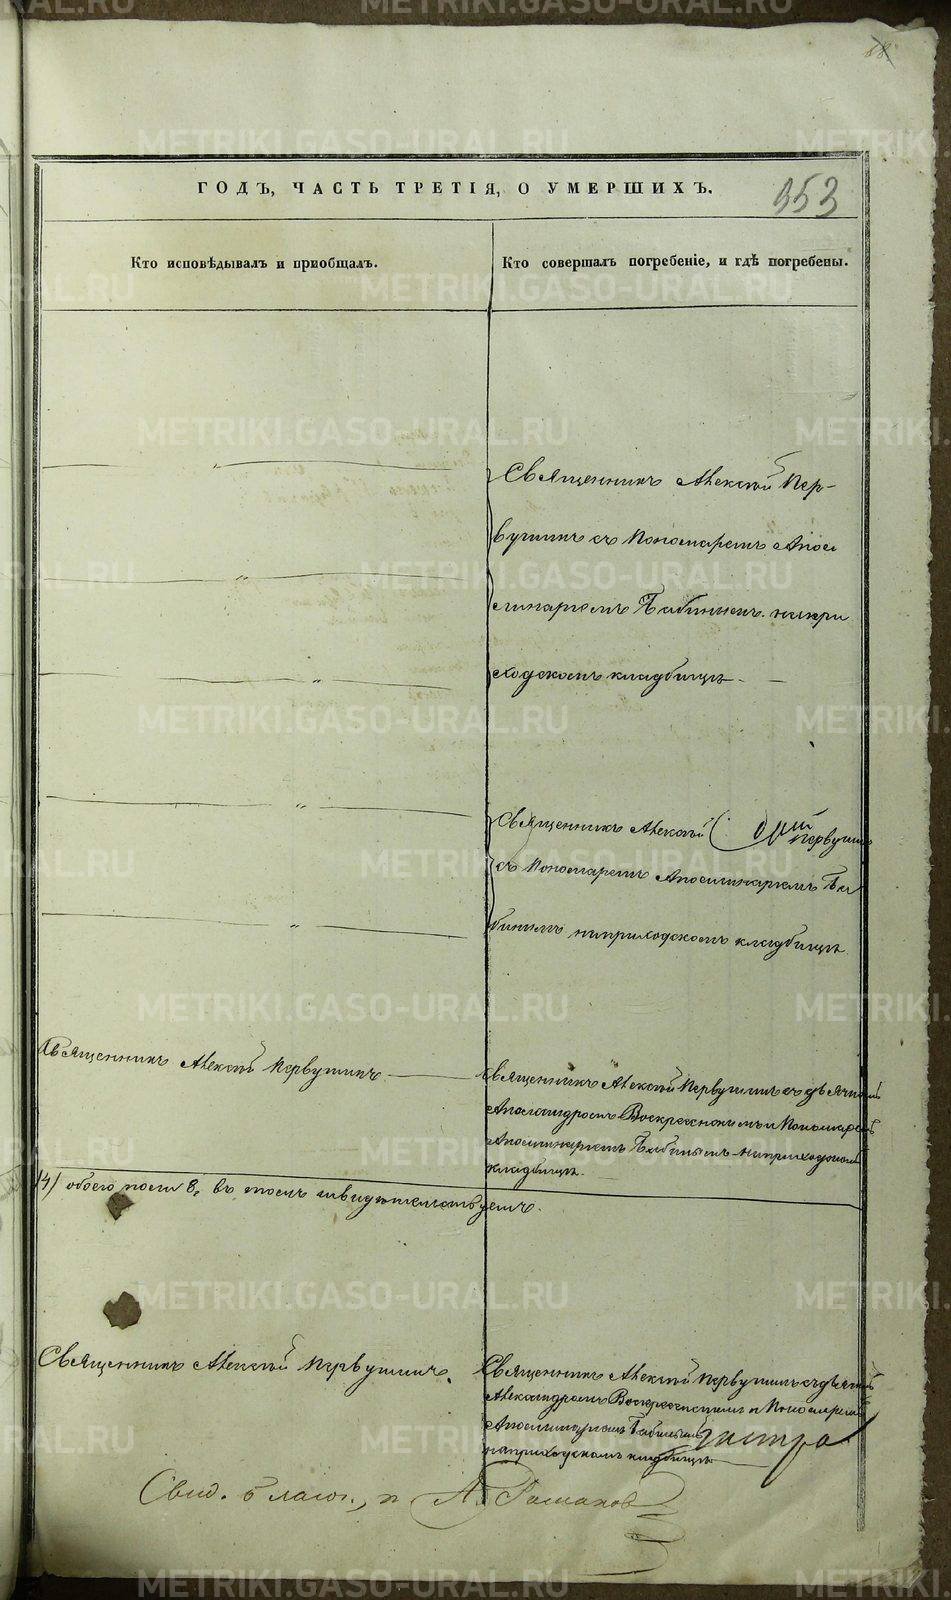 88.
ГОДЪ, ЧАСТЬ ТРЕТІЯ, О УМЕРШИХЪ.
953
Кто исповѣдывалъ и пріобщалъ.
Кто совершалъ погребеніе, и гдѣ погребены.
Священникъ Алексѣй Пер-
вушинъ съ Пономаремъ Апол
линаріемъ Бабинымъ на при
ходскомъ кладбищѣ
Священникъ Алексѣй
Первушинъ
съ Пономаремъ Аполлинаріемъ Ба
бинымъ на приходскомъ кладбищѣ
Священникъ Алексѣй Первушинъ
Священникъ Алексѣй Первушинъ съ дьячкомъ
Александромъ Воскресенскимъ и Пономаремъ
Аполлинаріемъ Бабинымъ на приходскомъ
кладбищѣ.
4) обоего пола 8, въ томъ свидѣтельствуемъ.
Священникъ Алексѣй Первушинъ.
Священникъ Алексѣй Первушинъ съ дьячкомъ
Александромъ Воскресенскимъ и Пономаремъ
Аполлинаріемъ Бабинымъ
на приходскомъ кладбищѣ
Свид. благоч., п А. Романов
METRIKI.GASO-URAL.RU